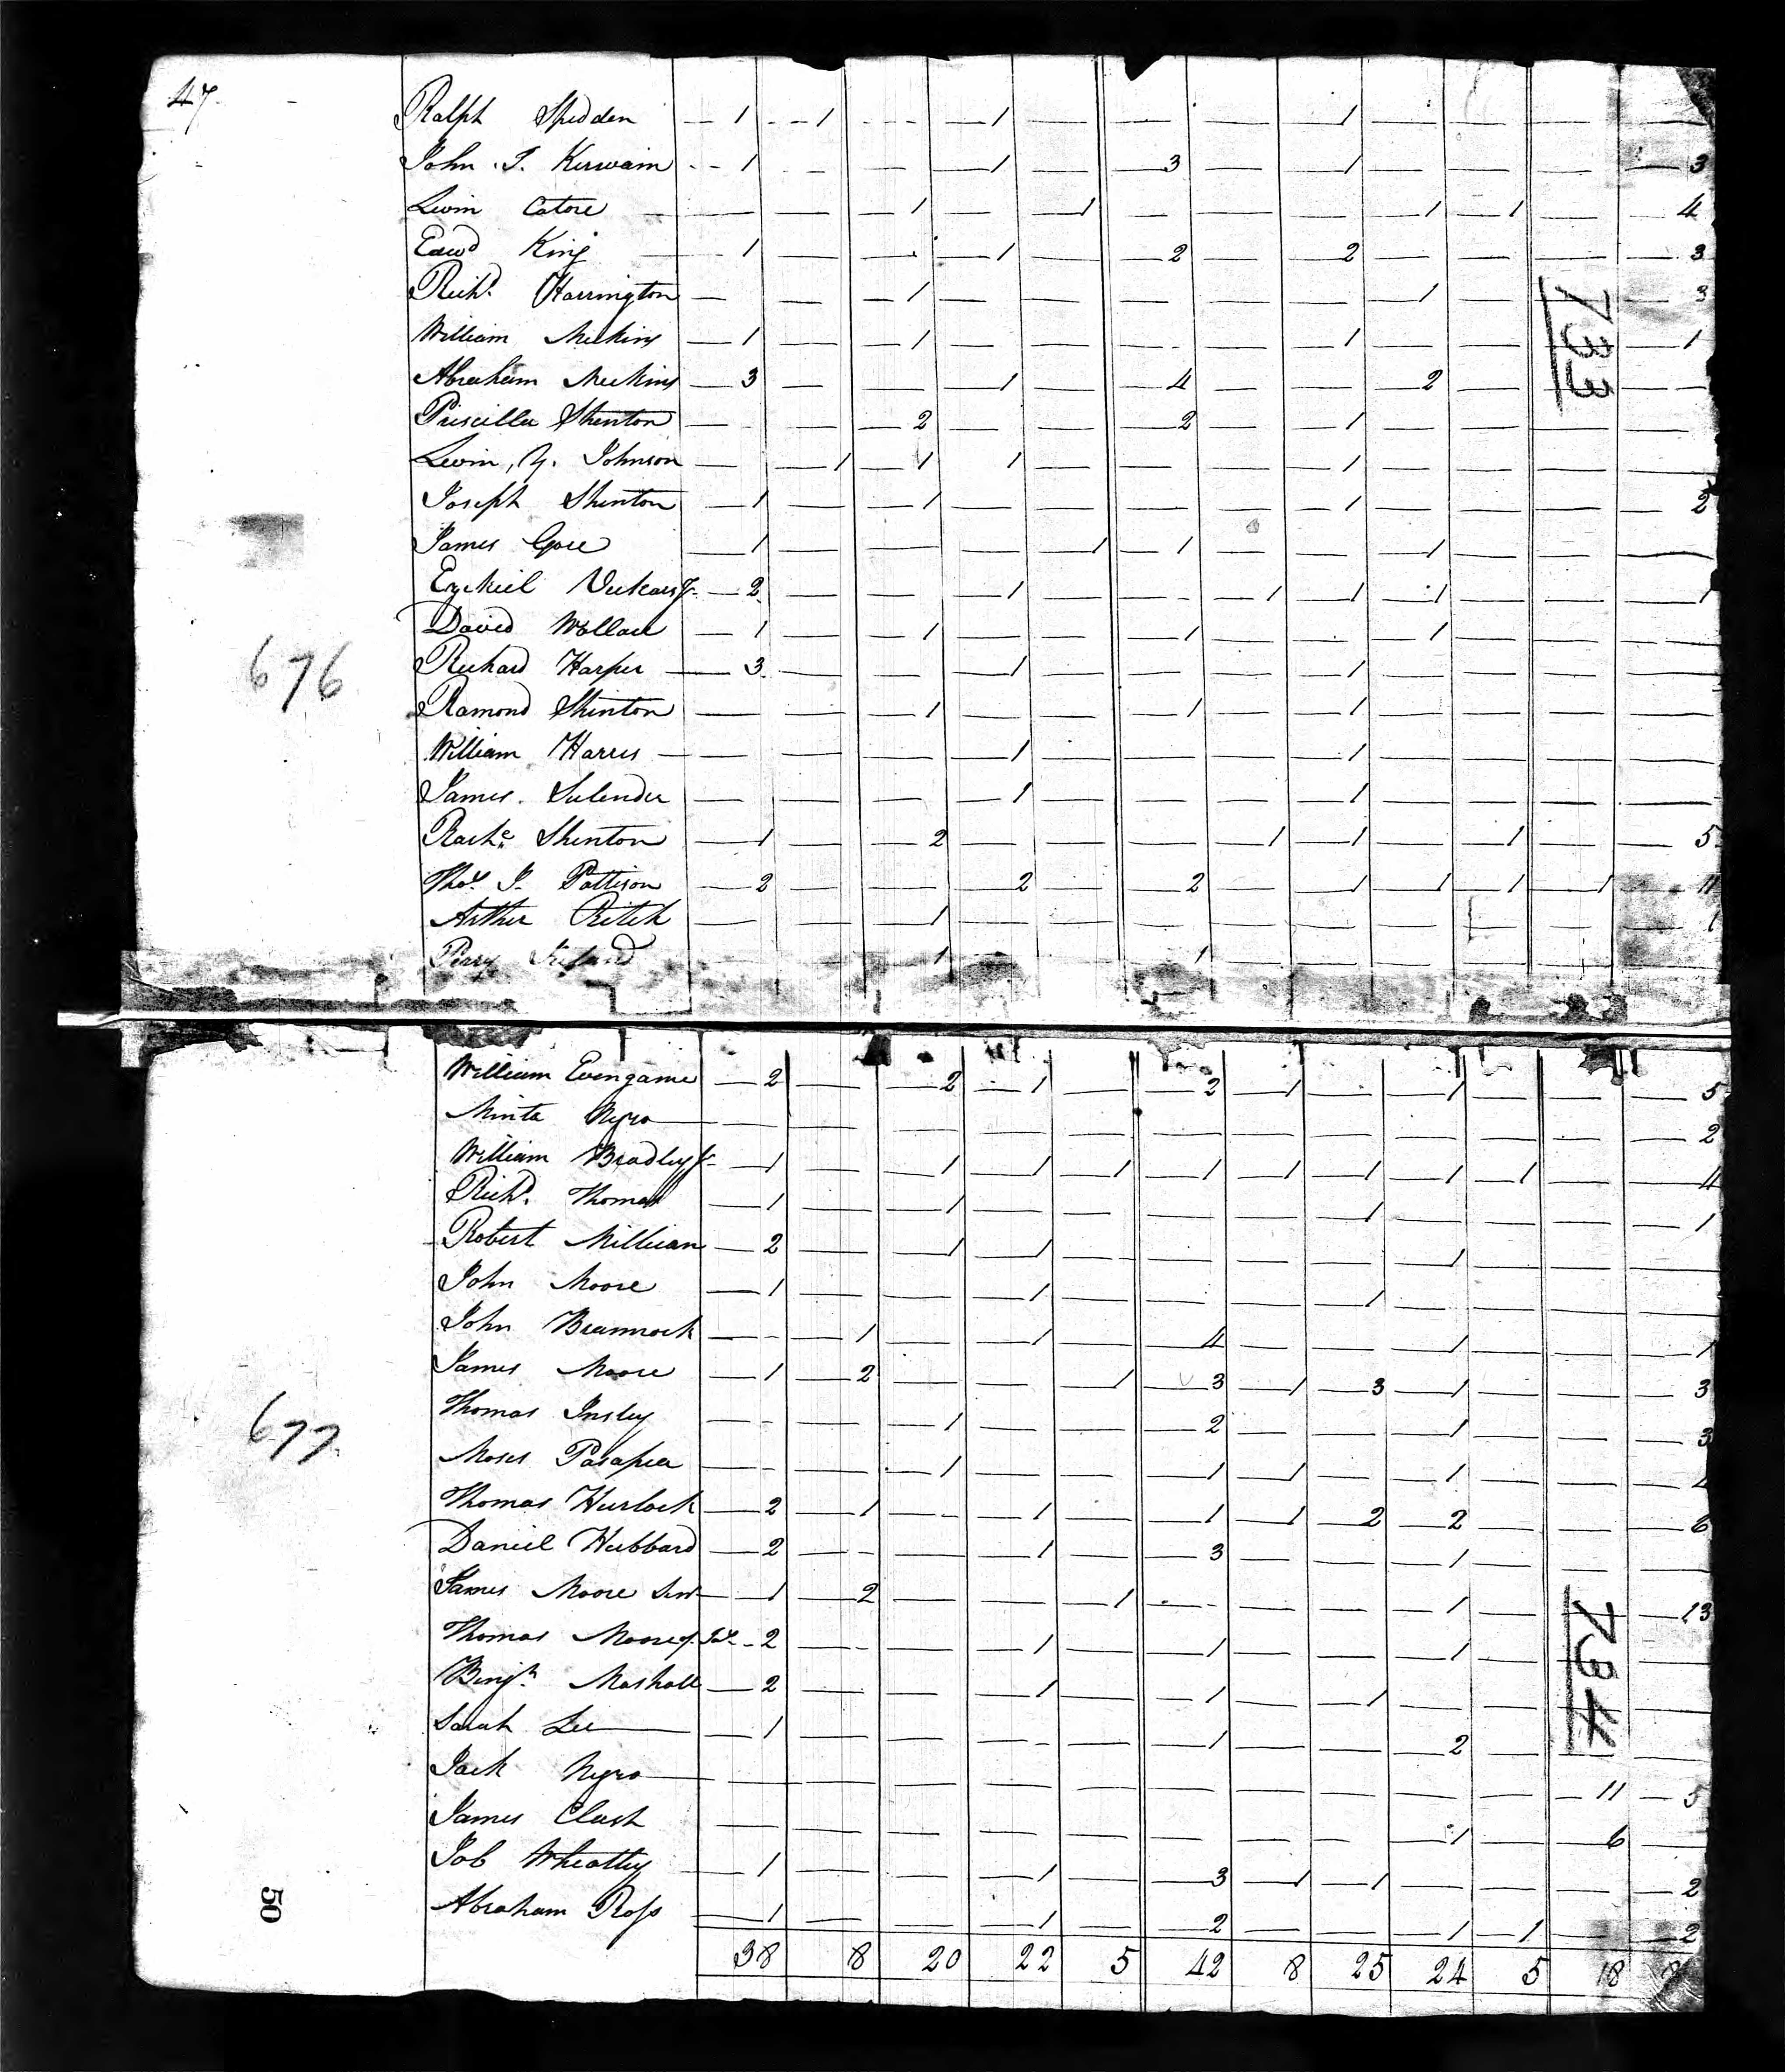 47
Ralph Spedden — 1 — 1 — — 1 — — — 1 — — — —
John J. Kirwain — 1 — — 1 — 3 — 1 — — — 3
Levin Catore — — — 1 — 1 — — — 1 1 — 4
Edwd King — 1 — — 1 — 2 — 2 — — — 3
Richd. Harrington — — 1 — — — — — 1 — — 3
William Meekins — 1 — 1 — — — — 1 — — — 1
Abraham Meekins — 3 — — 1 — 4 — — 2 — — —
Priscilla Shenton — — — 2 — — 2 — 1 — — — —
Levin, Y. Johnson — — 1 1 1 — — — 1 — — — —
Joseph Shenton — 1 — 1 — — — — 1 — — — 2
James Gore — 1 — — — 1 1 — — 1 — — —
Ezekiel Vickars Jr. — 2 — — 1 — — 1 1 1 — — 1
David Wallace — 1 — 1 — — 1 — — 1 — — —
Richard Harper — 3 — — 1 — — — 1 — — — —
Ramond Shinton — — — 1 — — 1 — 1 — — — —
William Harris — — — — 1 — — — 1 — — — —
James. — — — 1 — — — 1 — — — —
Shenton — 1 — 2 — — — 1 1 — 1 — 5
Thos. J. Pattison — 2 — — 2 — 2 — 1 1 1 1 11
Arther — — 1 — — — — — — — — 1
Perry 1 1
733
676
William Evengame — 2 — 2 1 — 2 1 — 1 — — 5
Minta Nyro — — — — — — — — — — — — 2
William Bradley Jr — 1 — 1 1 1 1 1 1 1 1 — 4
Richd. Thomas — 1 — 1 — — — — 1 — — — 1
Robert Millican — 2 — 1 1 — — — — 1 — — —
John Moore — 1 — — 1 — — — 1 — — — —
John Brannock — — 1 — 1 — 4 — — 1 — — 1
James Moore — 1 2 — — 1 3 1 3 1 — — 3
Thomas Insley — — — 1 — — 2 — — 1 — — 3
Moses Pasapea — — — 1 — — 1 1 — 1 — — 4
Thomas Hurlock — 2 1 — 1 — 1 1 2 2 — — 6
Daniel Hubbard — 2 — — 1 — 3 — — 1 — — —
James Moore Senr — 1 2 — — 1 — — — 1 — — 13
Thomas Moore of — 2 — — 1 — 1 — — 1 — — —
Benjn. Mashall — 2 — — 1 — 1 — 1 — — — —
Sarah Lee — 1 — — — — 1 — — 2 — — —
Jack Nyro — — — — — — — — — — — 11 5
James Clash — — — — — — — — — 1 — 6 —
Job Wheatley — 1 — — 1 — 3 1 1 — — — 2
Abraham Ross — 1 — — 1 — 2 — — 1 1 — 2
38 8 20 22 5 42 8 25 24 5 18
677
734
50